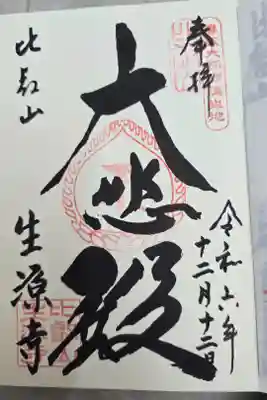 奉拝
令和六年
十二月十二日
大悲殿
比叡山
生源寺